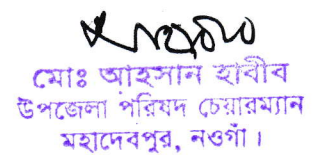 মোঃ আহসান হাবীব
উপজেলা পরিষদ চেয়ারম্যান
মহাদেবপুর, নওগাঁ।